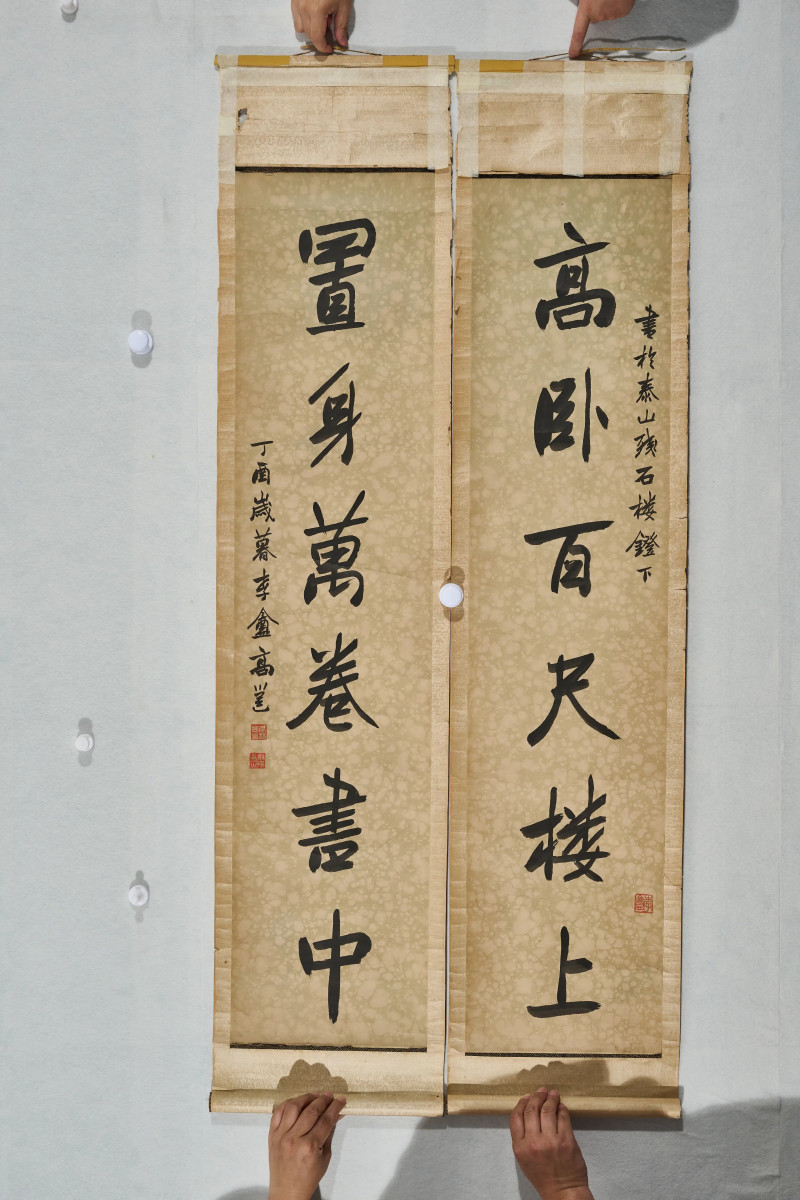 高卧百尺楼上
書於泰山殘石楼鐙下
置身萬卷書中
丁酉歲暮李鑫高邕